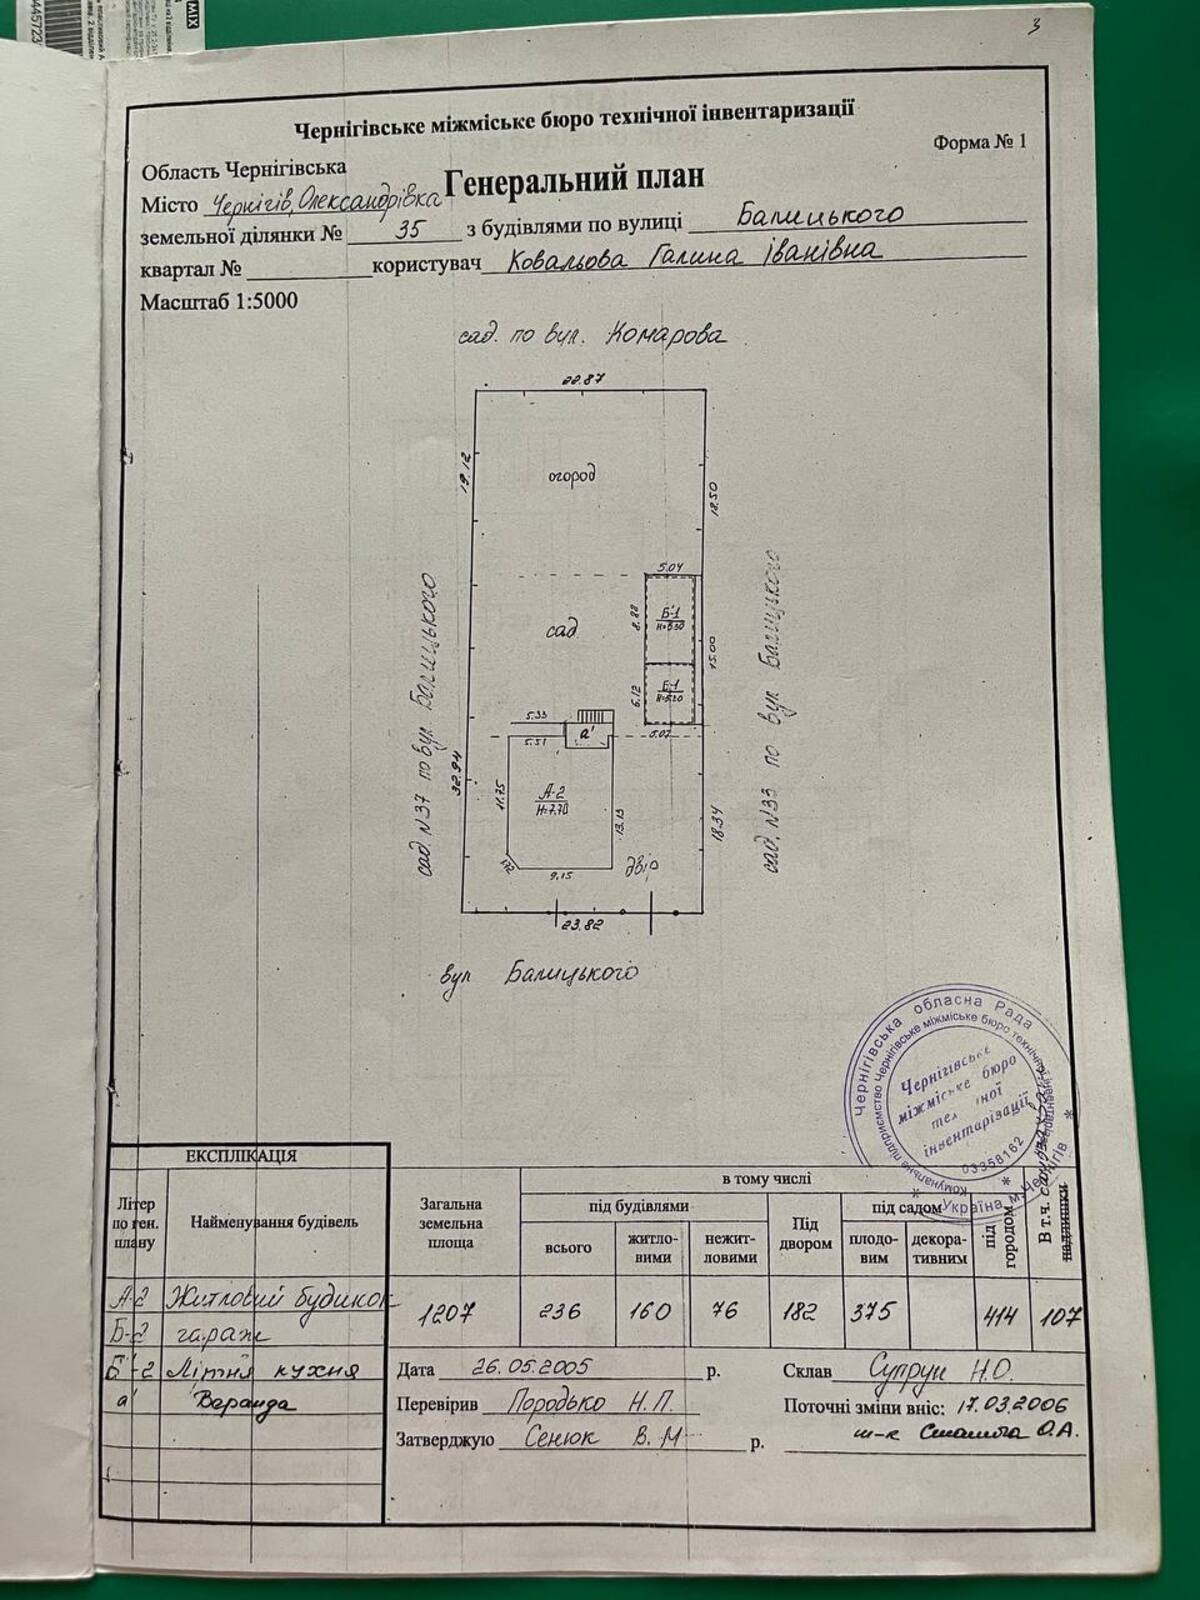 3
Чернігівське міжміське бюро технічної інвентаризації
Форма № 1
Область Чернігівська
Генеральний план
Місто Чернігів, Олександрівка
земельної ділянки № 35 з будівлями по вулиці Балицького
квартал № користувач Ковальова Галина Іванівна
Масштаб 1:5000
сад. по вул. Комарова
22.87
19.12
огород
18.50
5.04
8.88
Б'-1
сад
15.00
6.12
Б-1
5.07
5.33
а'
5.51
32.94
11.75
А-2
Н=7.70
13.13
18.34
9.15
двір
23.82
сад N37 по вул Балицького
сад. N33 по вул Балицького
вул Балицького
Чернігівська обласна Рада
Комунальне підприємство Чернігівське міжміське бюро технічної інвентаризації
Чернігівське
міжміське бюро
інвентарізації
03358162
Україна, м.Чернігів
ЕКСПЛІКАЦІЯ
Літер по ген. плану
Найменування будівель
Загальна земельна площа
в тому числі
під будівлями
всього
житло-вими
нежит-ловими
Під двором
під садом
плодо-вим
декора-тивним
під городом
В т.ч.
надлишки
А-2 Житловий будинок
Б-2 гараж
Б'-2 Літня кухня
а' Веранда
1207 236 160 76 182 375 414 107
Дата 26.05.2005 р. Склав Супрун Н.О.
Перевірив Породько Н.П. Поточні зміни вніс: 17.03.2006
Затверджую Сенюк В.М р.
О.А.